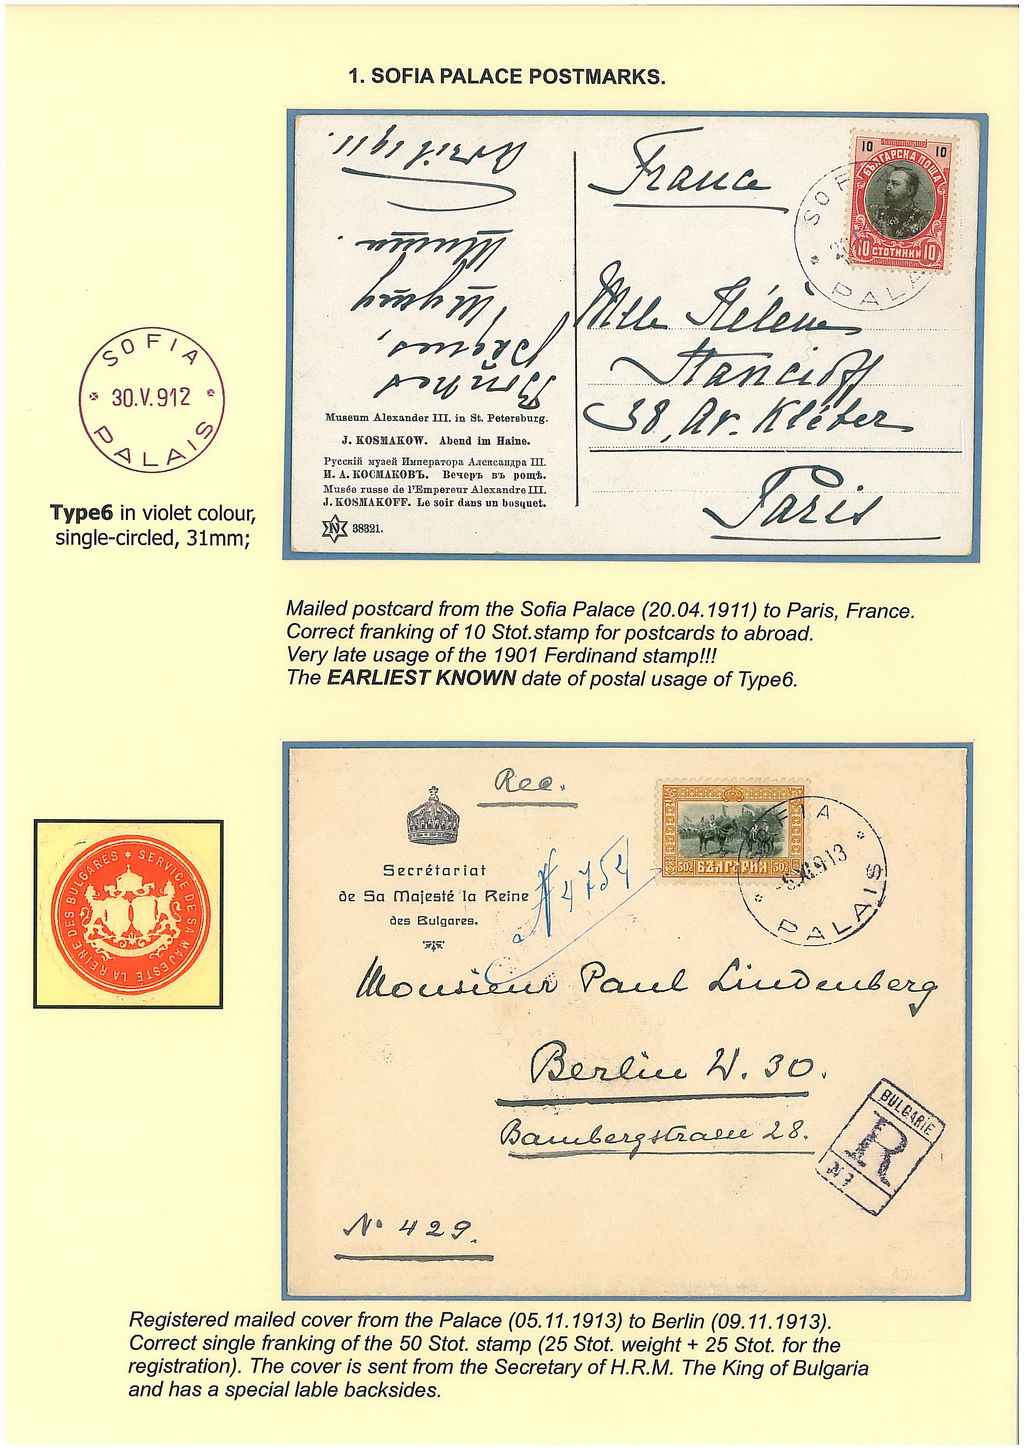 1. SOFIA PALACE POSTMARKS.
SOFIA
30.V.912
PALAIS
Type6 in violet colour,
single-circled, 31mm;
1911.
Museum Alexander III. in St. Petersburg.
J. KOSMAKOW. Abend im Haine.
Русскій музей Императора Александра III.
И. А. КОСМАКОВЪ. Вечеръ въ рощѣ.
Musée russe de l'Empereur Alexandre III.
J. KOSMAKOFF. Le soir dans un bosquet.
N 38321.
France
10 10
БЪЛГАРСКА ПОЩА
10 СТОТИНКИ 10
SOF
PALA
Mlle Hélène
Stancioff
38, Av. Kléber
Paris
Mailed postcard from the Sofia Palace (20.04.1911) to Paris, France.
Correct franking of 10 Stot.stamp for postcards to abroad.
Very late usage of the 1901 Ferdinand stamp!!!
The EARLIEST KNOWN date of postal usage of Type6.
SERVICE DE SA MAJESTÉ LA REINE DES BULGARES
Rec.
Secrétariat
de Sa Majesté la Reine
des Bulgares.
4754
50 БЪЛГАРИЯ 50
FIA
913
PALAIS
Monsieur Paul Lindenberg
Berlin W. 30.
Bambergstrasse 28.
BULGARIE
R
№ 429.
Registered mailed cover from the Palace (05.11.1913) to Berlin (09.11.1913).
Correct single franking of the 50 Stot. stamp (25 Stot. weight + 25 Stot. for the
registration). The cover is sent from the Secretary of H.R.M. The King of Bulgaria
and has a special lable backsides.